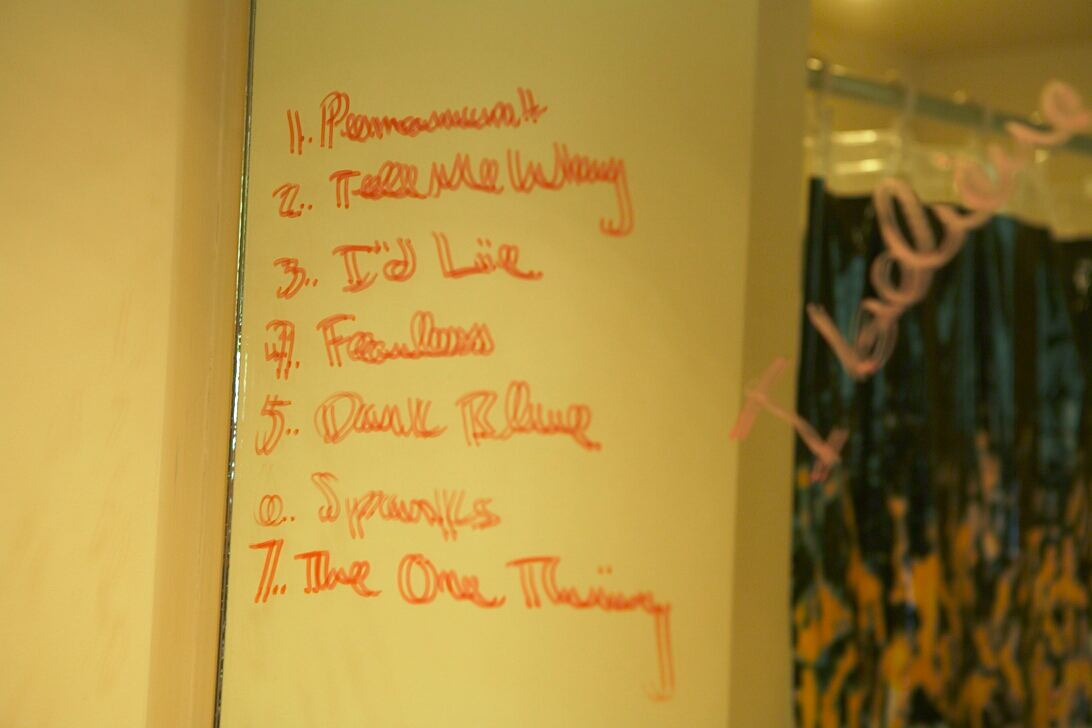 1. Permanent
2. Tell Me Why
3. I'd Lie
4. Fearless
5. Dark Blue
6. Sparks
7. The One Thing
I Love